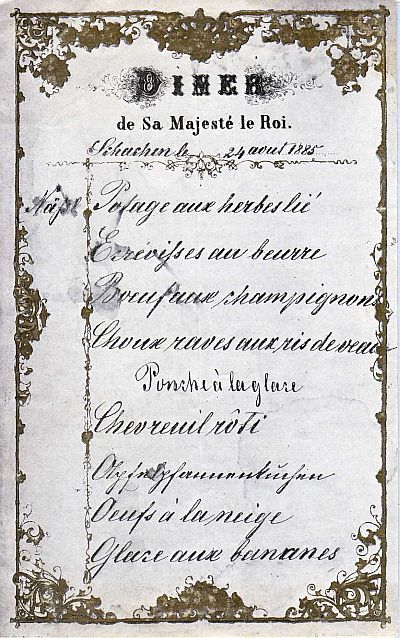 DINER
de Sa Majesté le Roi.
Schachen le 24 aout 1885.
Potage aux herbes lié
Ecrévisses au beurre
Boeuf aux champignons
Choux raves aux ris de veau
Ponche à la glace
Chevreuil rôti
Apfelpfannenkuchen
Oeufs à la neige
Glace aux bananes